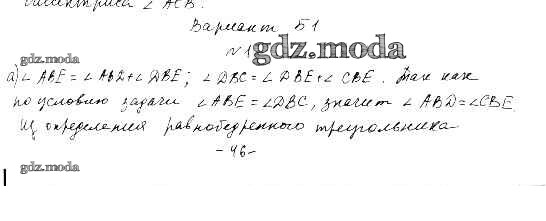 биссектриса ∠ ACB.
Вариант Б1
N1 gdz.moda
gdz.moda
а) ∠ ABE = ∠ ABD + ∠ DBE; ∠ DBC = ∠ DBE + ∠ CBE. Так как
по условию задачи ∠ ABE = ∠ DBC, значит ∠ ABD = ∠CBE.
Из определения равнобедренного треугольника
- 46 -
gdz.moda